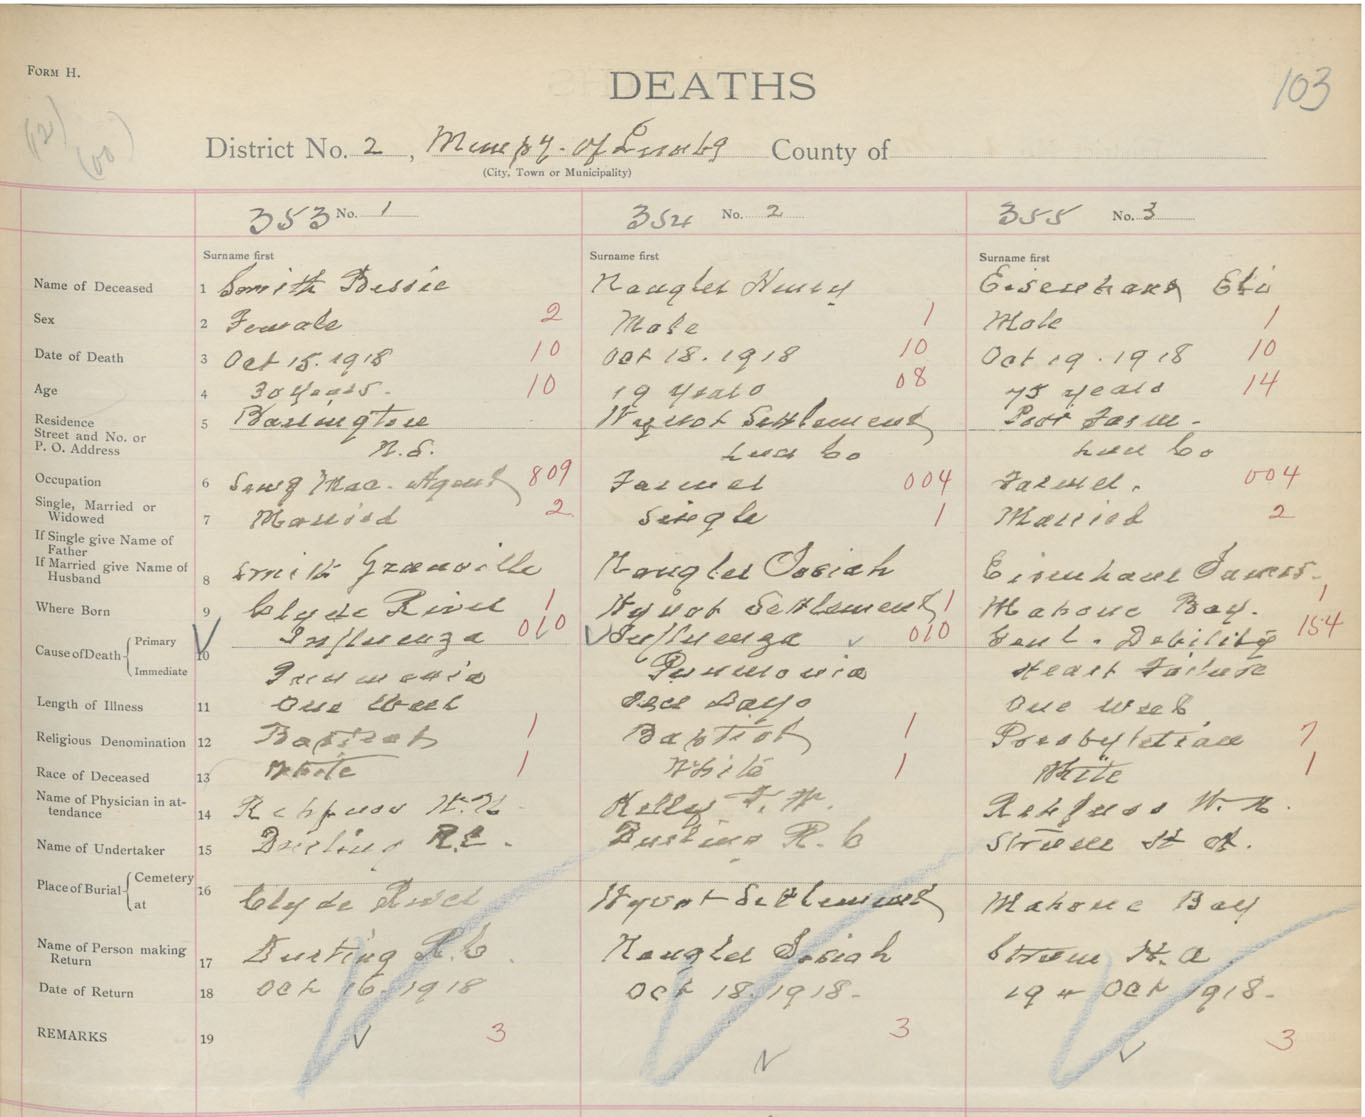 FORM H.
DEATHS
103
(12)
(00)
District No. 2, Municpy. of Lunenbg County of
(City, Town or Municipality)
353 No. 1 354 No. 2 355 No. 3
Surname first Surname first Surname first
Name of Deceased 1 Smith Bessie Naugler Henry Eisenhaur Eli
Sex 2 Female 2 Male 1 Male 1
Date of Death 3 Oct 15. 1918 10 Oct 18. 1918 10 Oct 19. 1918 10
Age 4 30 years. 10 19 years 08 75 years 14
Residence Street and No. or P. O. Address 5 Barrington N.S. Wynot Settlement Lun Co Poor Farm. Lun Co
Occupation 6 Sewg Mac. Agent 809 Farmer 004 Farmer. 004
Single, Married or Widowed 7 Married 2 Single 1 Married 2
If Single give Name of Father
If Married give Name of Husband 8 Smith Granville Naugler Josiah Eisenhaur James.
Where Born 9 Clyde River 1 Wynot Settlement 1 Mahone Bay. 1
Cause of Death Primary 10 Influenza 010 Influenza 010 Genl. Debility 154
Immediate Pneumonia Pneumonia Heart Failure
Length of Illness 11 One Week Ten Days One week
Religious Denomination 12 Baptist 1 Baptist 1 Presbyterian 7
Race of Deceased 13 White 1 White 1 White 1
Name of Physician in attendance 14 Rehfuss W. N. Kelly F. W. Rehfuss W. N.
Name of Undertaker 15 R.C. R. C Strum H A.
Place of Burial Cemetery at 16 Clyde River Wynot Settlement Mahone Bay
Name of Person making Return 17 R. C. Naugler Josiah Strum H. A.
Date of Return 18 Oct 16. 1918 Oct 18. 1918. 19 Oct 1918.
REMARKS 19 3 3 3